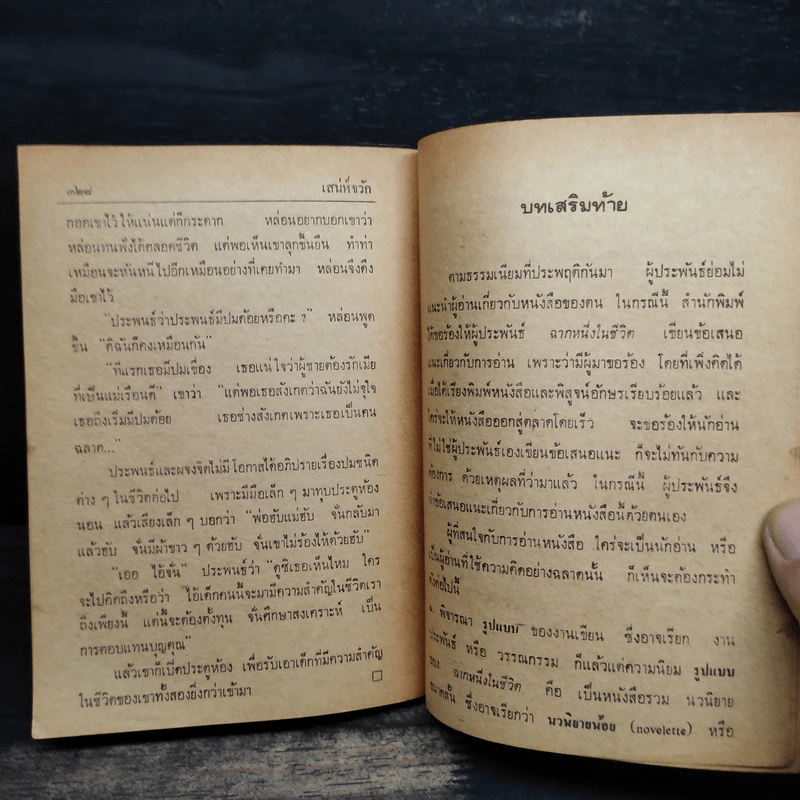 ๓๒๘ เสน่ห์จวัก
กอดเขาไว้ ให้แน่นแต่ก็กระดาก หล่อนอยากบอกเขาว่า
หล่อนทนฟังได้ตลอดชีวิต แต่พอเห็นเขาลุกขึ้นยืน ทำท่า
เหมือนจะหันหนีไปอีกเหมือนอย่างที่เคยทำมา หล่อนจึงดึง
มือเขาไว้
"ประพนธ์ว่าประพนธ์มีปมด้อยหรือคะ ?" หล่อนพูด
ขึ้น "ดิฉันก็คงเหมือนกัน"
"ทีแรกเธอมีปมเขื่อง เธอแน่ใจว่าผู้ชายต้องรักเมีย
ที่เป็นแม่เรือนดี" เขาว่า "แต่พอเธอสังเกตว่าฉันยังไม่จุใจ
เธอถึงเริ่มมีปมด้อย เธอช่างสังเกตเพราะเธอเป็นคน
ฉลาด..."
ประพนธ์และผจงจิตไม่มีโอกาสได้อภิปรายเรื่องปมชนิด
ต่าง ๆ ในชีวิตต่อไป เพราะมีมือเล็ก ๆ มาทุบประตูห้อง
นอน แล้วเสียงเล็ก ๆ บอกว่า "พ่อฮับแม่ฮับ จั่นกลับมา
แล้วฮับ จั่นมีผ้าขาว ๆ ด้วยฮับ จั่นเขาไม่ร้องไห้ด้วยฮับ"
"เออ ไอ้จั่น" ประพนธ์ว่า "ดูซิเธอเห็นไหม ใคร
จะไปคิดถึงหรือว่า ไอ้เด็กคนนี้จะมามีความสำคัญในชีวิตเรา
ถึงเพียงนี้ แต่นี้จะต้องตั้งทุน จั่นศึกษาสงเคราะห์ เป็น
การตอบแทนบุญคุณ"
แล้วเขาก็เปิดประตูห้อง เพื่อรับเอาเด็กที่มีความสำคัญ
ในชีวิตของเขาทั้งสองยิ่งกว่าเข้ามา
บทเสริมท้าย
ตามธรรมเนียมที่ประพฤติกันมา ผู้ประพันธ์ย่อมไม่
แนะนำผู้อ่านเกี่ยวกับหนังสือของตน ในกรณีนี้ สำนักพิมพ์
ได้ขอร้องให้ผู้ประพันธ์ ฉากหนึ่งในชีวิต เขียนข้อเสนอ
แนะเกี่ยวกับการอ่าน เพราะว่ามีผู้มาขอร้อง โดยที่เพิ่งคิดได้
เมื่อได้เรียงพิมพ์หนังสือและพิสูจน์อักษรเรียบร้อยแล้ว และ
ใคร่จะให้หนังสือออกสู่ตลาดโดยเร็ว จะขอร้องให้นักอ่าน
ที่ไม่ใช่ผู้ประพันธ์เองเขียนข้อเสนอแนะ ก็จะไม่ทันกับความ
ต้องการ ด้วยเหตุผลที่ว่ามาแล้ว ในกรณีนี้ ผู้ประพันธ์จึง
ทำข้อเสนอแนะเกี่ยวกับการอ่านหนังสือนี้ด้วยตนเอง
ผู้ที่สนใจกับการอ่านหนังสือ ใคร่จะเป็นนักอ่าน หรือ
เป็นผู้อ่านที่ใช้ความคิดอย่างฉลาดนั้น ก็เห็นจะต้องกระทำ
ดังต่อไปนี้
๑. พิจารณา รูปแบบ ของงานเขียน ซึ่งอาจเรียก งาน
ประพันธ์ หรือ วรรณกรรม ก็แล้วแต่ความนิยม รูปแบบ
ของ ฉากหนึ่งในชีวิต คือ เป็นหนังสือรวม นวนิยาย
ขนาดสั้น ซึ่งอาจเรียกว่า นวนิยายน้อย (novelette) หรือ